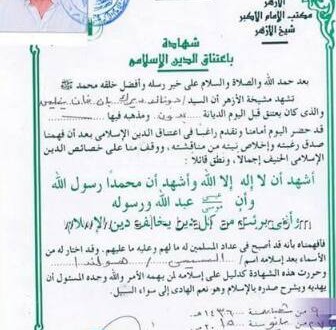 الأزهر
مكتب الإمام الأكبر
شيخ الأزهر
شهادة
باعتناق الدين الإسلامى
بعد حمد الله والصلاة والسلام على خير رسله وأفضل خلقه محمد ﷺ
تشهد مشيخة الأزهر أن السيد
والذى كان يعتنق قبل اليوم الديانة بدون ومذهبه فيها
قد حضر اليوم أمامنا وتقدم راغبا فى اعتناق الدين الإسلامى بعد أن فهمنا
صدق رغبته وإخلاص نيته من مناقشته ، ووقف منا على خصائص الدين
الإسلامى الحنيف إجمالا ، ونطق قائلا :
أشهد أن لا إله إلا الله وأشهد أن محمدا رسول الله
وأن عيسى موسى عبد الله ورسوله
وأنى برئت من كل دين يخالف دين الإسلام
فأفهمناه بأنه قد أصبح فى عداد المسلمين له ما لهم وعليه ما عليهم. وقد اختار له من
الأسماء بعد إسلامه اسم
وحررت هذه الشهادة كدليل على إسلامه لن يهمه الأمر والله وحده المسئول أن
يهديه ويشرح صدره بالإسلام وهو نعم الهادى إلى سواء السبيل.
من ١٤٣٦ هـ